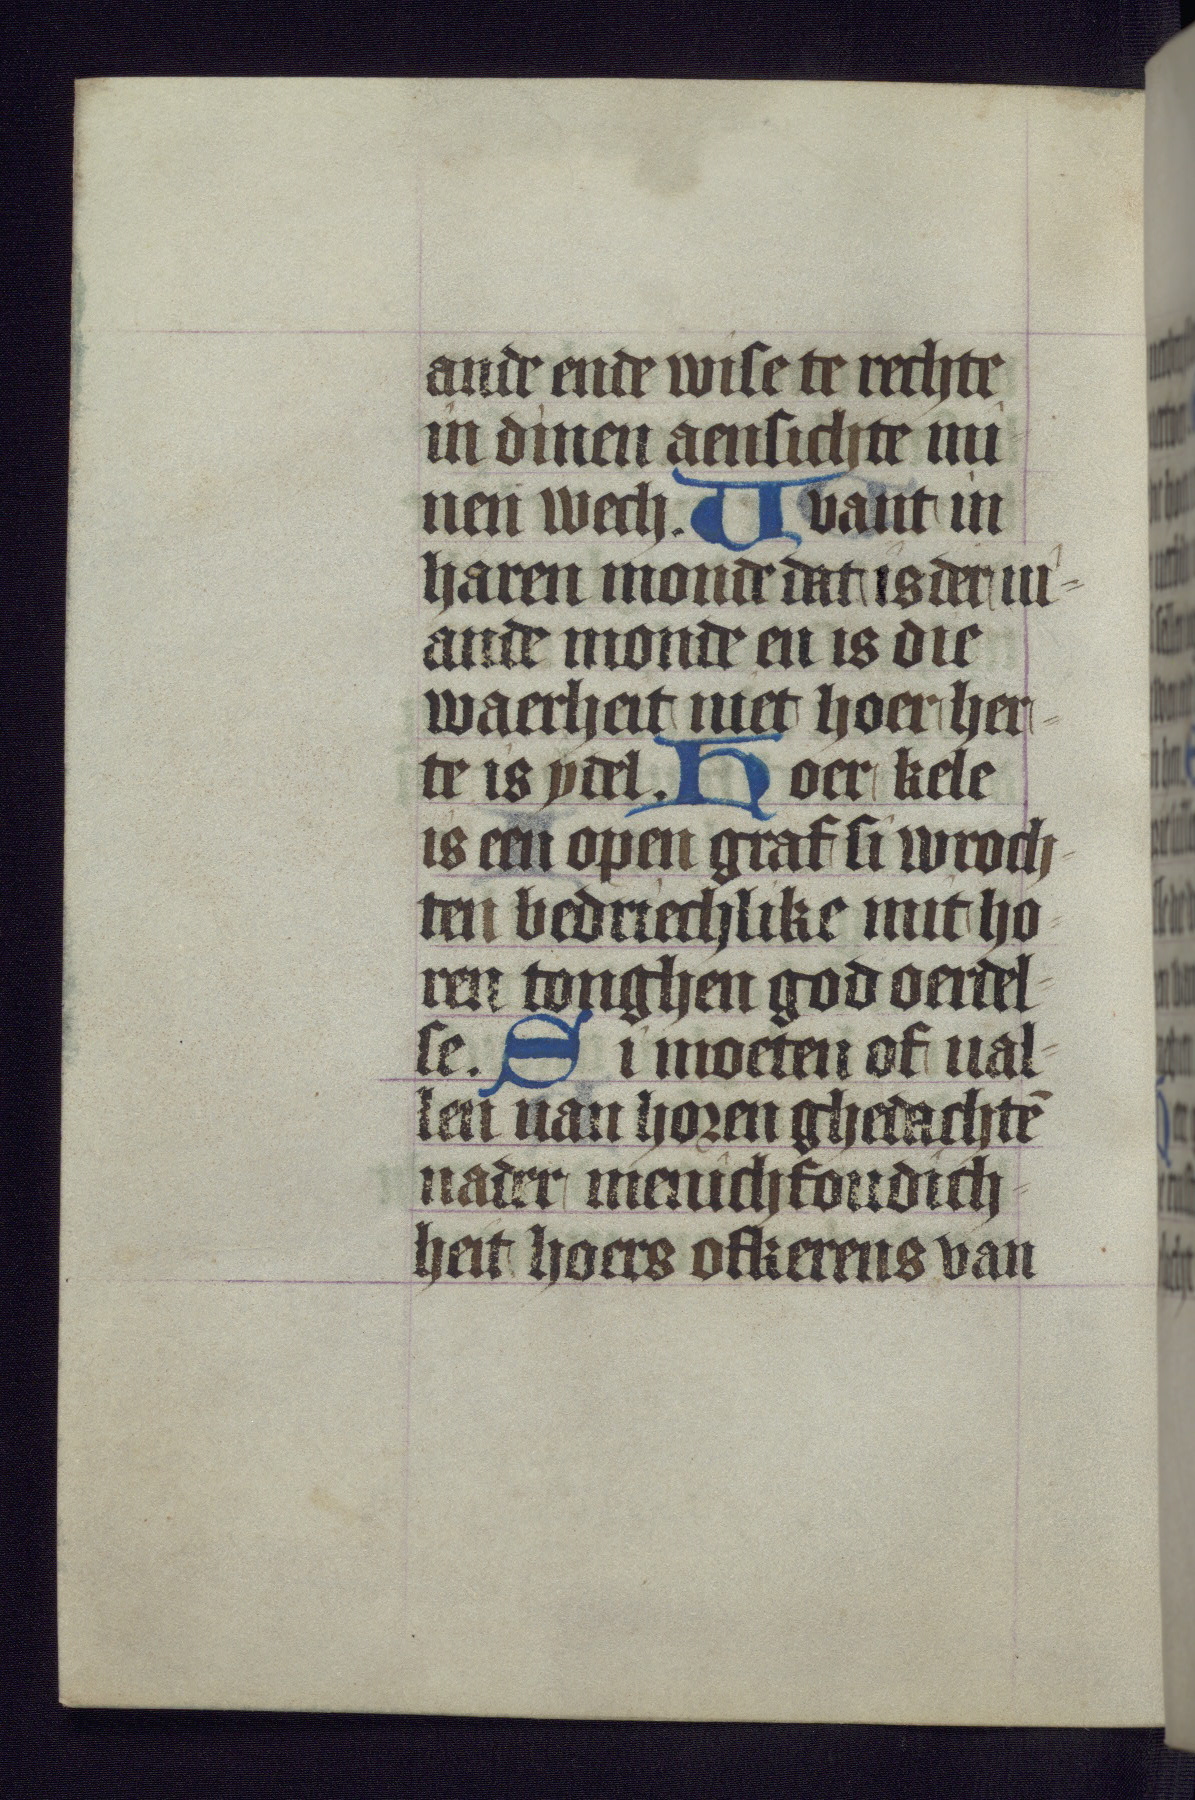 ande ende wise te rechte
in dinen aensichte mi
nen wech. Uvant in
haren monde dat is der ui-
ande monde en is die
waerheit niet hoer her-
te is ydel. Hoer kele
is een open graf si wroch-
ten bedriechlike mit ho-
ren tonghen god oerdel-
se. Si moeten of ual-
len uan horen ghedachtē
nader menichfoudich-
heit hoers ofkerens van